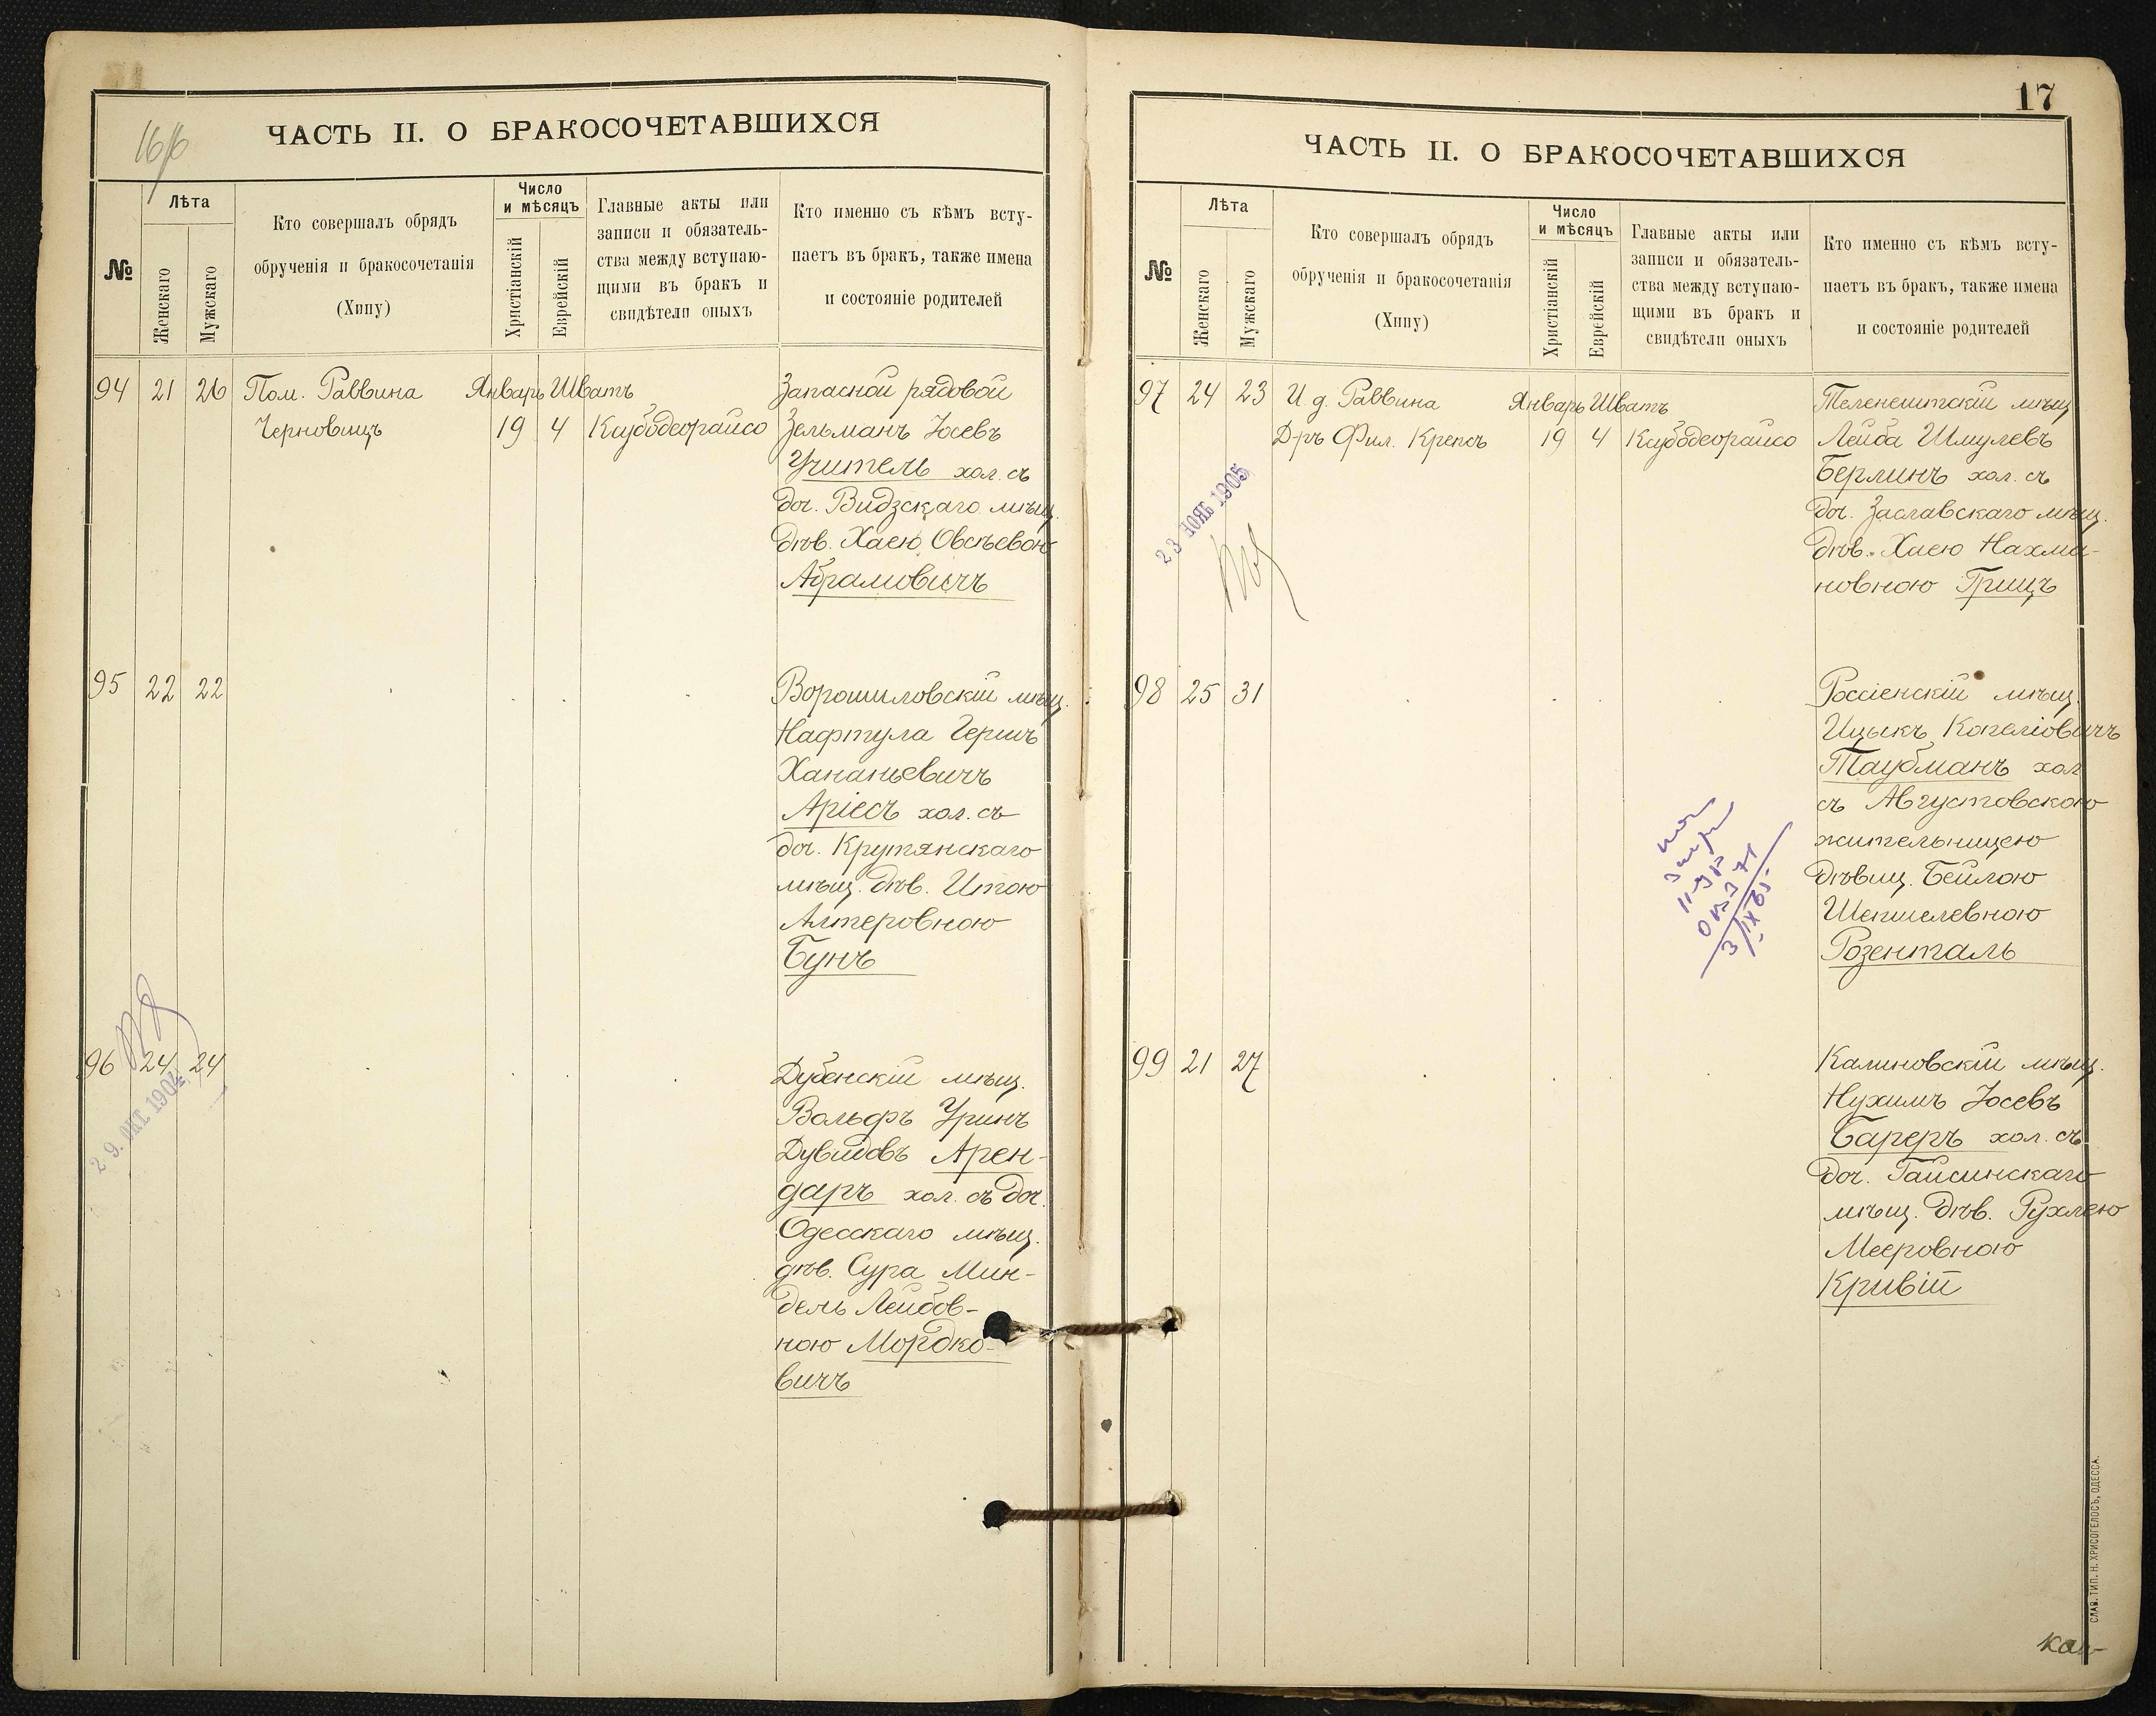 16/16
ЧАСТЬ II. О БРАКОСОЧЕТАВШИХСЯ
№
Лѣта
Женскаго
Мужскаго
Кто совершалъ обрядъ
обрученія и бракосочетанія
(Хипу)
Число
и мѣсяцъ
Христіанскій
Еврейскій
Главные акты или
записи и обязатель-
ства между вступаю-
щими въ бракъ и
свидѣтели оныхъ
Кто именно съ кѣмъ всту-
паетъ въ бракъ, также имена
и состояніе родителей
94 21 26 Пом. Раввина Январь Шватъ Запасной рядовой
Черновицъ 19 4 Каубодеорайсо Зельманъ Іосевъ
Учитель хол. съ
доч. Видзскаго мѣщ.
дѣв. Хаею Овсѣевою
Абрамовичъ
95 22 22 Ворошиловскій мѣщ.
Нафтула Гершъ
Хананьевичъ
Аріесъ хол. съ
доч. Крутянскаго
мѣщ. дѣв. Итою
Алтеровною
Бунъ
96 24 24 Дубенскій мѣщ.
29. ОКТ. 1904
Вольфъ Уринъ
Дувидовъ Арен-
даръ хол. съ доч.
Одесскаго мѣщ.
дѣв. Сура Мин-
дель Лейбов-
ною Мордко-
вичъ
17
ЧАСТЬ II. О БРАКОСОЧЕТАВШИХСЯ
№
Лѣта
Женскаго
Мужскаго
Кто совершалъ обрядъ
обрученія и бракосочетанія
(Хипу)
Число
и мѣсяцъ
Христіанскій
Еврейскій
Главные акты или
записи и обязатель-
ства между вступаю-
щими въ бракъ и
свидѣтели оныхъ
Кто именно съ кѣмъ всту-
паетъ въ бракъ, также имена
и состояніе родителей
97 24 23 И д. Раввина Январь Шватъ Теленештскій мѣщ
Д-ръ Фил. Крепсъ 19 4 Каубодеорайсо Лейба Шмулевъ
Берлинъ хол. съ
доч. Заславскаго мѣщ.
дѣв. Хаею Нахма-
новною Грицъ
23 НОЯБ 1905
98 25 31 Россіенскій мѣщ.
Ицыкъ Копеліовичъ
Таубманъ хол
съ Августовскою
жительницею
дѣвиц. Бейлою
Шепшелевною
Розенталь
3/IX 65
99 21 27 Калиновскій мѣщ.
Нухимъ Іосевъ
Бареръ хол. съ
доч. Гайсинскаго
мѣщ. дѣв. Рухлею
Мееровною
Кривій
СЛАВ. ТИП. Н. ХРИСОГЕЛОСЪ, ОДЕССА.